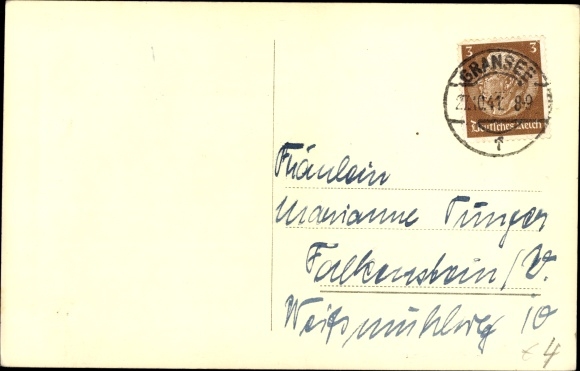 3 3
GRANSEE
27.10.41. 8-9
Deutsches Reich
f
Fräulein
Marianne Tunger
Falkenstein/V.
Weißmühlweg 10
4